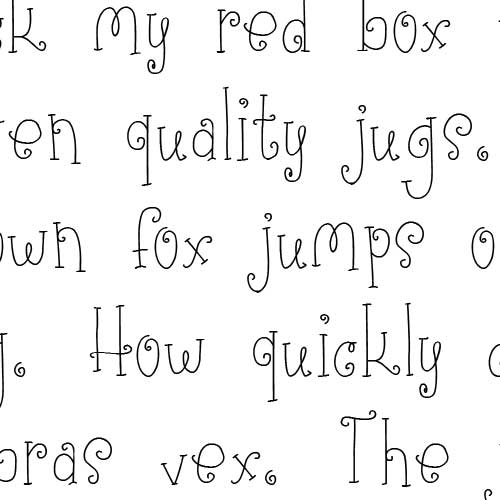 ck my red box
ven quality jugs.
own fox jumps o
g. How quickly
bras vex. The